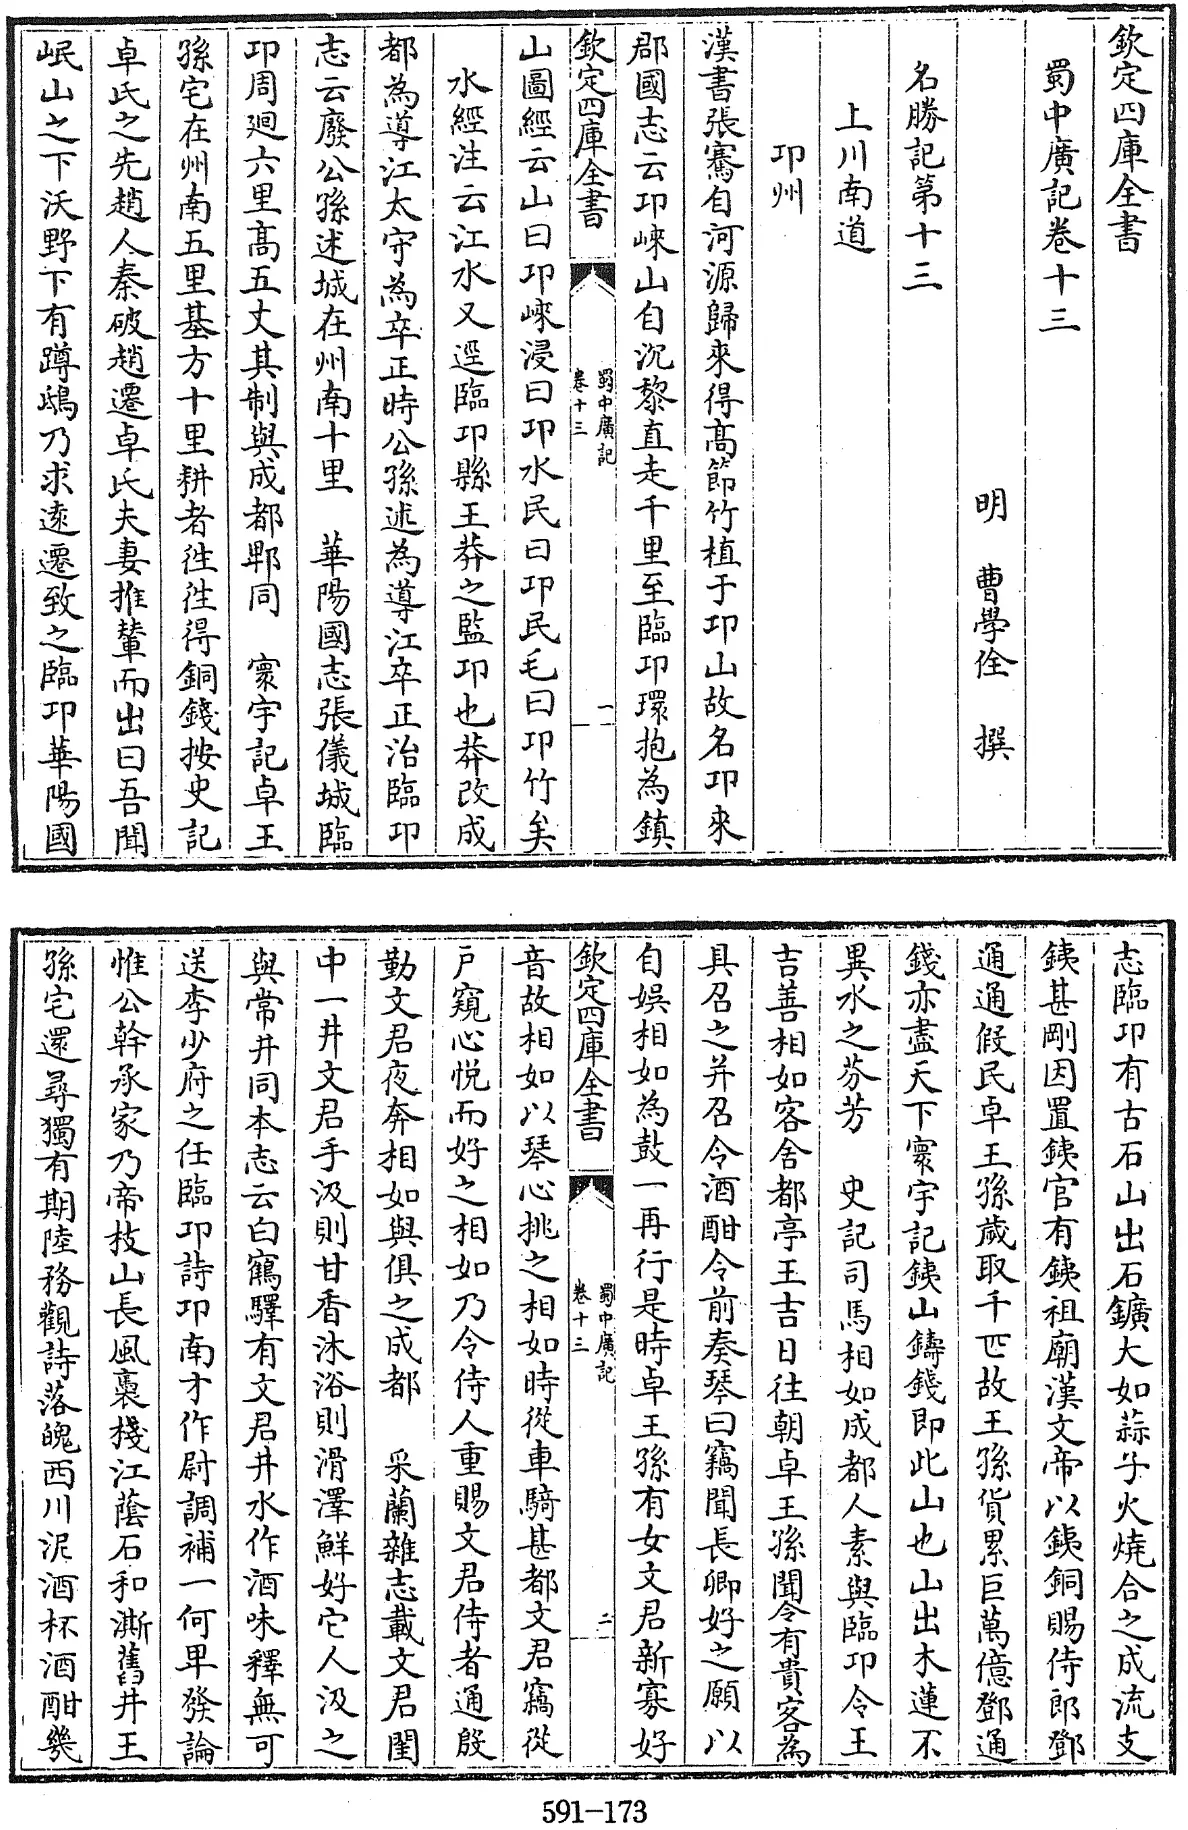 欽定四庫全書
蜀中廣記卷十三
明 曹學佺 撰
名勝記第十三
上川南道
卭州
漢書張騫自河源歸來得髙節竹植于卭山故名卭來
郡國志云卭崍山自沉黎直走千里至臨卭環抱為鎮
欽定四庫全書
蜀中廣記
卷十三
一
山圖經云山曰卭崍浸曰卭水民曰卭民毛曰卭竹矣
水經注云江水又逕臨卭縣王莽之監卭也莽改成
都為導江太守為卒正時公孫述為導江卒正治臨卭
志云廢公孫述城在州南十里 華陽國志張儀城臨
卭周廻六里髙五丈其制與成都郫同 寰宇記卓王
孫宅在州南五里基方十里耕者徃徃得銅錢按史記
卓氏之先趙人秦破趙遷卓氏夫妻推輦而出曰吾聞
岷山之下沃野下有蹲鴟乃求逺遷致之臨卭華陽國
志臨卭有古石山出石鑛大如蒜子火燒合之成流支
銕甚剛因置銕官有銕祖廟漢文帝以銕銅賜侍郎鄧
通通假民卓王孫歳取千匹故王孫貨累巨萬億鄧通
錢亦盡天下寰宇記銕山鑄錢即此山也山出木蓮不
異水之芬芳 史記司馬相如成都人素與臨卭令王
吉善相如客舍都亭王吉日往朝卓王孫聞令有貴客為
具召之并召令酒酣令前奏琴曰竊聞長卿好之願以
自娯相如為鼓一再行是時卓王孫有女文君新寡好
欽定四庫全書
蜀中廣記
卷十三
二
音故相如以琴心挑之相如時從車騎甚都文君竊從
戸窺心悦而好之相如乃令侍人重賜文君侍者通殷
勤文君夜奔相如與俱之成都 采蘭雜志載文君閨
中一井文君手汲則甘香沐浴則滑澤鮮好它人汲之
與常井同本志云白鶴驛有文君井水作酒味釋無可
送李少府之任臨卭詩卭南才作尉調補一何早發論
惟公幹承家乃帝枝山長風裛棧江䕃石和澌舊井王
孫宅還尋獨有期陸務觀詩落魄西川泥酒杯酒酣㡬
591-173